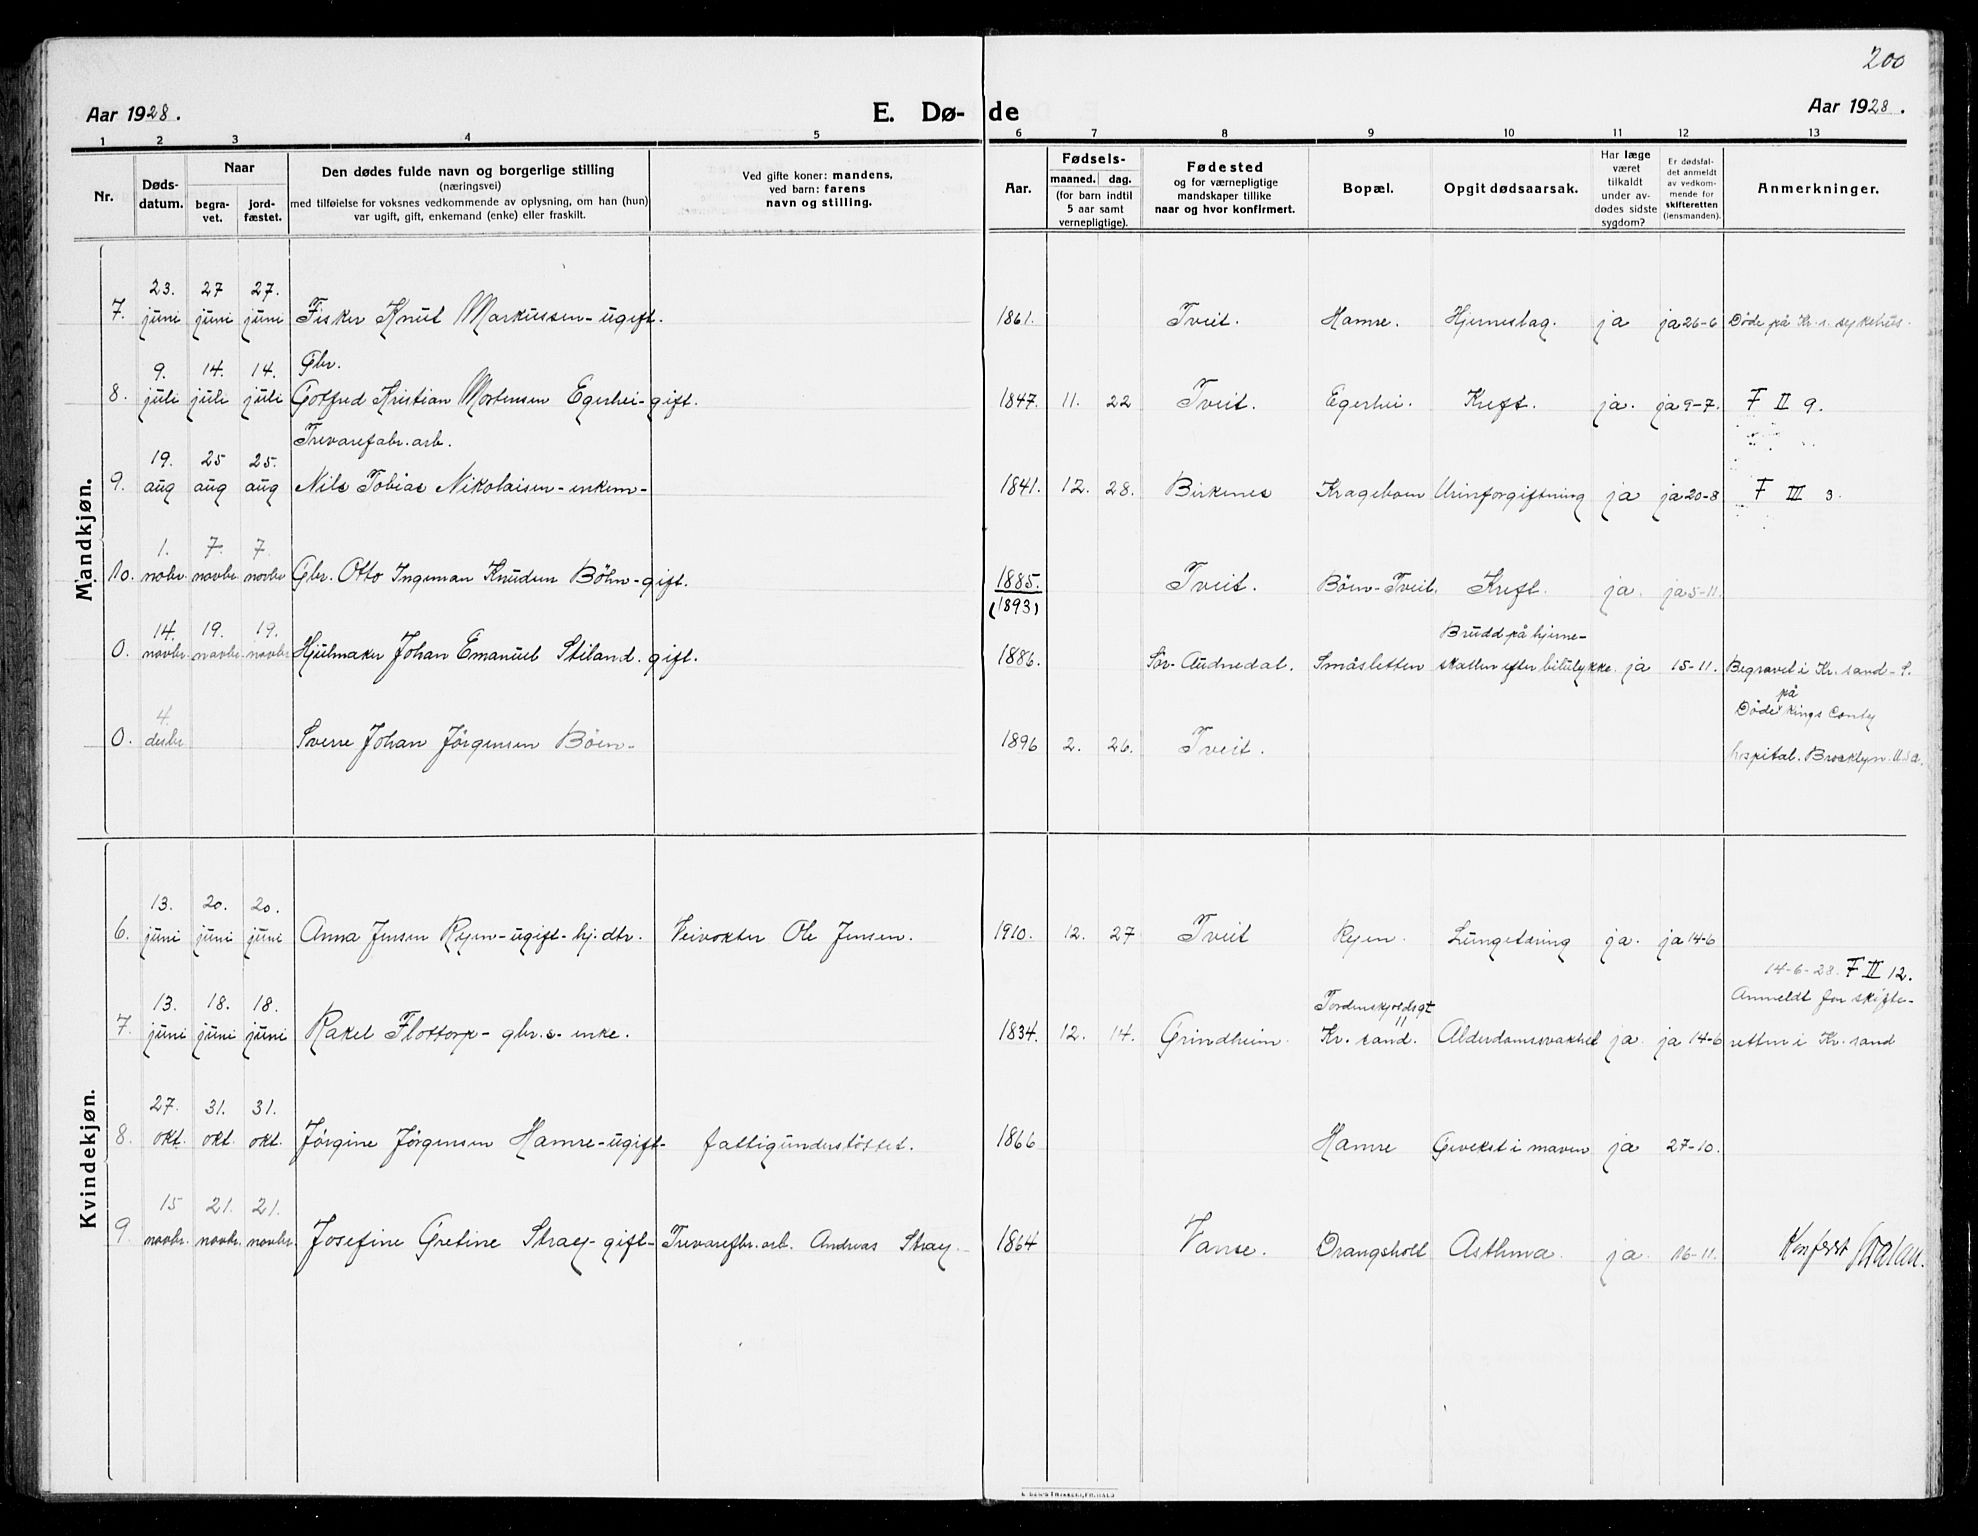 200
Aar 1928. E. Dø- de Aar 1928.
1 2 3 4 5 6 7 8 9 10 11 12 13
Nr.
Døds-
datum.
Naar
begra-
vet.
jord-
fæstet.
Den dødes fulde navn og borgerlige stilling
(næringsvei)
med tilføielse for voksnes vedkommende av oplysning, om han (hun)
var ugift, gift, enkemand (enke) eller fraskilt.
Ved gifte koner: mandens,
ved barn: farens
navn og stilling.
Aar.
Fødsels-
maaned. dag.
(for barn indtil
5 aar samt
vernepligtige).
Fødested
og for værnepligtige
mandskaper tillike
naar og hvor konfirmert.
Bopæl.
Opgit dødsaarsak.
Har læge
været
tilkaldt
under av-
dødes sidste
sygdom?
Er dødsfal-
det anmeldt
av vedkom-
mende for
skifteretten
(lensmanden).
Anmerkninger.
Mandkjøn.
23. 27 27.
7. juni juni juni Fisker Knut Markussen - ugift. 1861. Tveit. Hamre. Hjerneslag. ja ja 26-6 Døde på Kr. s. sykehus.
9. 14. 14. Gbr.
8. juli juli juli Gotfred Kristian Mortensen Egerhei - gift. 1847. 11. 22 Tveit. Egerhei. Kreft. ja. ja 9-7. F II 9.
Trevarefabr. arb.
19. 25 25.
9. aug aug aug Nils Tobias Nikolaisen - enkem - 1841. 12. 28. Birkenes Krageboen Urinforgiftning ja ja 20-8 F III 3.
1. 7. 7.
10. novbr novbr. novbr Gbr. Otto Ingeman Knudsen Böhn - gift. 1885. Tveit. Böen - Tveit. Kreft. ja. ja 5-11.
(1893)
14. 19. 19. Brudd på hjerne-
0. novbr novbr novbr Hjulmaker Johan Emanuel Stiland. gift. 1886. Sør-Audnedal. Småsletten skallen efter bilulykke. ja 15-11. Begravet i Kr. sand - S.
4. på
Døde Kings Conty
0. desbr Sverre Johan Jörgensen Böen - 1896 2. 26. Tveit. hospital. Brooklyn. U.S.A.
Kvindekjøn.
13. 20. 20.
6. juni juni juni Anna Jensen Ryen - ugift - hj. dtr. Veivokter Ole Jensen. 1910. 12. 27 Tveit Ryen. Lungetæring ja. ja 14-6
14-6-28. F II 12.
13. 18. 18. Tordenskjoldsgt 11 Anmeldt for skifte-
7. juni juni juni Rakel Flottorp - gbr. s. enke. 1834. 12. 14. Grindheim. Kr. sand. Alderdomssvakhet ja. ja 14-6 retten i Kr. sand
27. 31. 31.
8. okt. okt. okt. Jörgine Jörgensen Hamre - ugift - fattigunderstöttet. 1866 Hamre Gevekst i maven ja 27-10.
15 21. 21.
9. novbr. novbr. novbr. Josefine Gretine Stray - gift - Trevarefbr. arb. Andreas Stray. 1864 Vanse. Drangsholt Asthma. ja. 16-11. Konferert